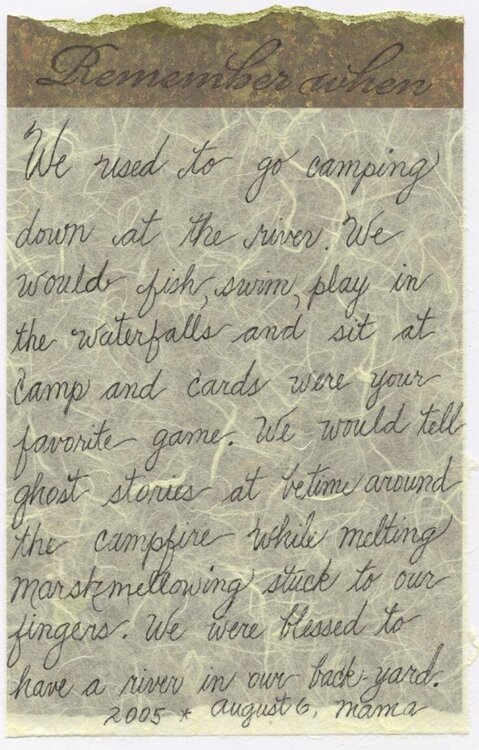 Remember when
We used to go camping
down at the river. We
would fish, swim, play in
the waterfalls and sit at
camp and cards were your
favorite game. We would tell
ghost stories at betime around
the campfire while melting
marshmellowing stuck to our
fingers. We were blessed to
have a river in our back-yard.
2005 * August 6, Mama